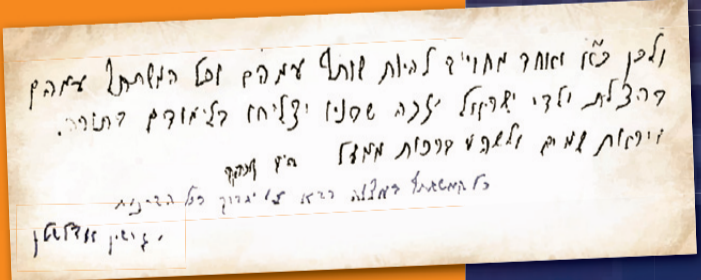 ולכן כ"א ואחד מחוייב להיות שותף עמהם וכל המשתתף עמהם
בהצלת ילדי ישראל יזכה שבניו יצליחו בלימודם בתורה.
ויראות שמים ולשפע ברכות ממעל
כל המשתתף יבורך בכל הברכות